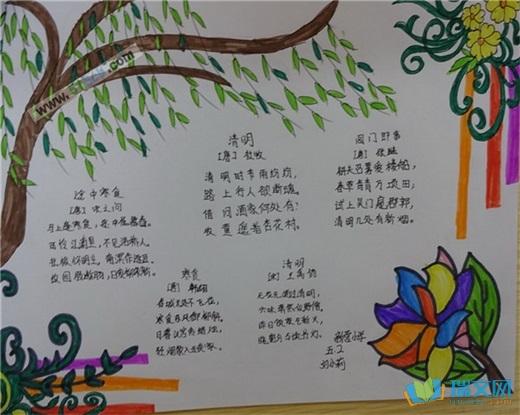 清明
[唐] 杜牧
清明时节雨纷纷,
路上行人欲断魂。
借问酒家何处有?
牧童遥指杏花村。
阊门即事
[唐] 张继
耕夫召募爱楼船,
春草青青万顷田;
试上吴门窥郡郭,
清明几处有新烟。
途中寒食
[唐] 宋之问
马上逢寒食,途中属暮春。
可怜江浦望,不见洛桥人。
北极怀明主,南溟作逐臣。
故园肠断处,日夜柳条新。
寒食
[唐] 韩翃
春城无处不飞花,
寒食东风御柳斜。
日暮汉宫传蜡烛,
轻烟散入五侯家。
清明
[宋] 王禹偁
无花无酒过清明,
兴味萧然似野僧。
昨日邻家乞新火,
晓窗分与读书灯。
营小学
五.2
瑞文网